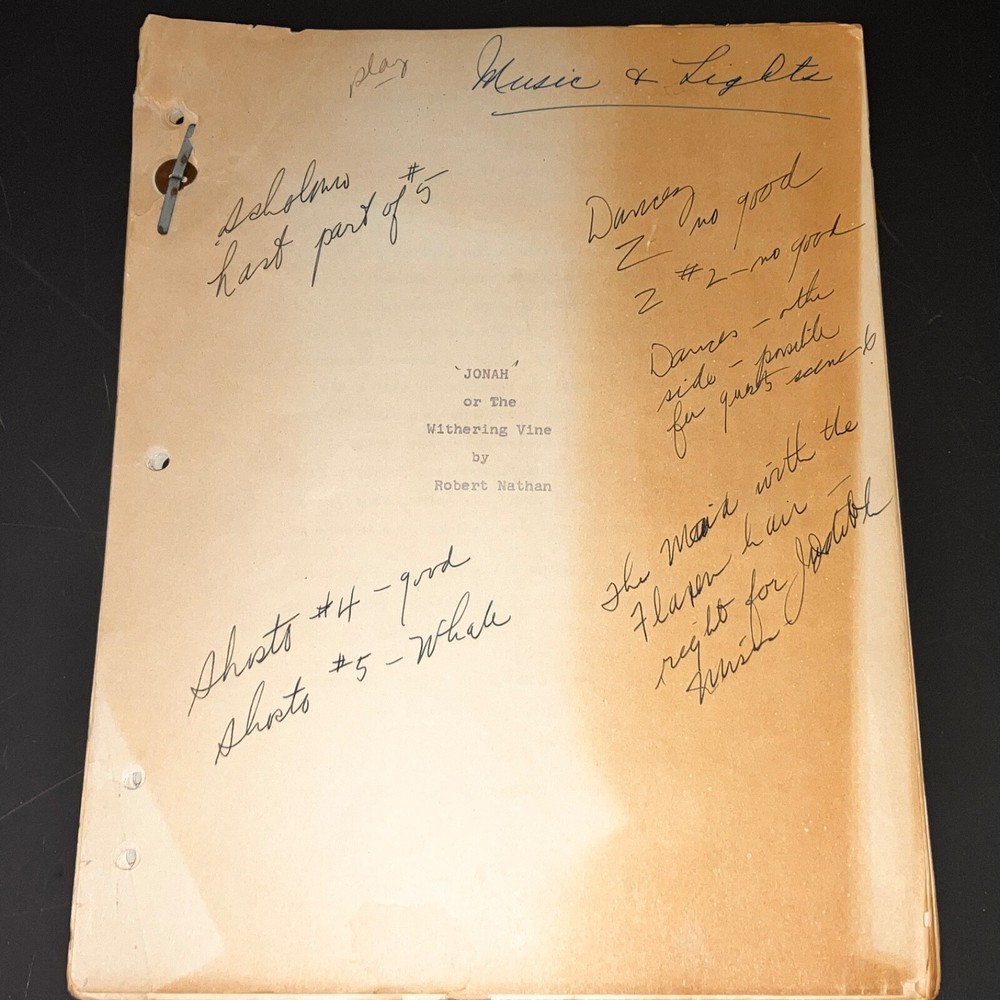 play
Music & Lights
last part of #5
Dances
Z no good
Z #2 - no good
Dances - other
side - possible
for guests scene 6
'JONAH'
or The
Withering Vine
by
Robert Nathan
Shosto #4 - good
Shosto #5 - Whale
The Maid with the
Flaxen hair -
right for Judith
music